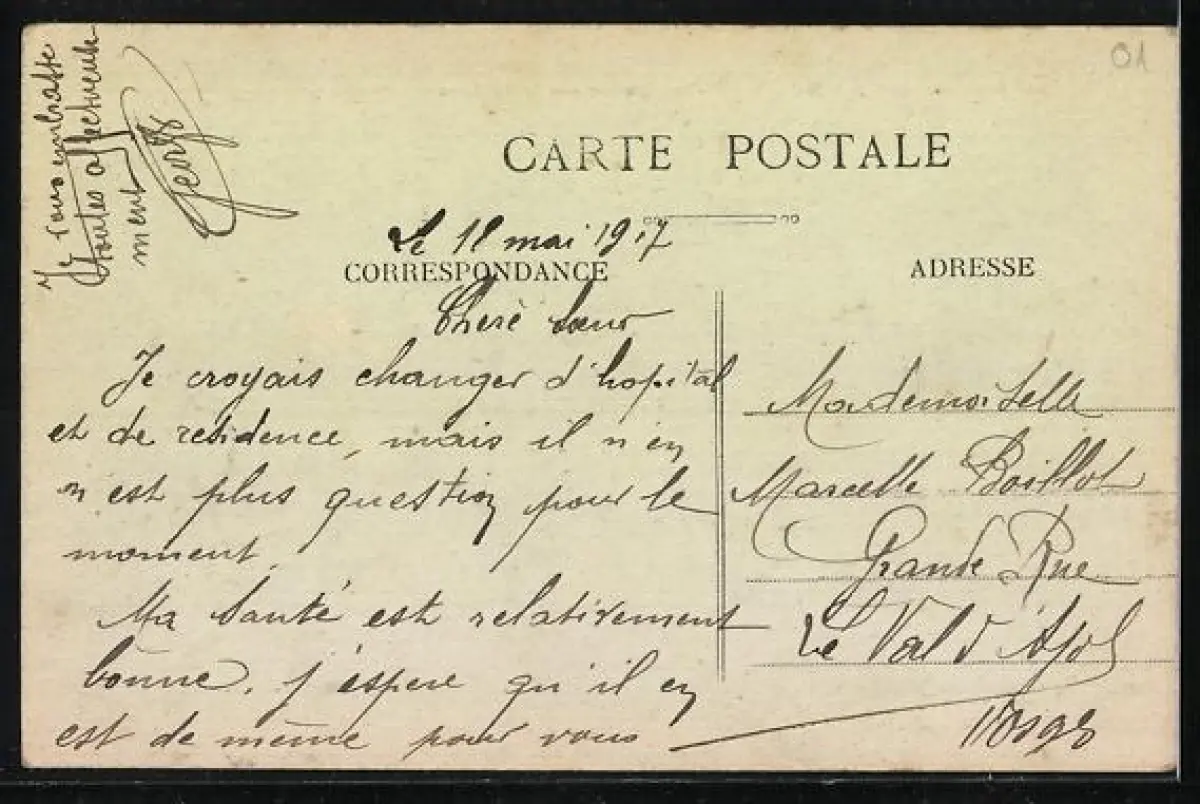 01
CARTE POSTALE
Le 18 mai 1917
CORRESPONDANCE
Cherè Sœur
Je croyais changer d'hopital
et de residence, mais il n'en
n'est plus question pour le
moment.
Ma Santé est relativement
bonne. j'espere qu'il en
est de même pour vous
Je vous embrasse
toutes affectueuse
ment
ADRESSE
Mademoiselle
Marcelle Boillot
Grande Rue
Le Val d'Ajol
Vosges